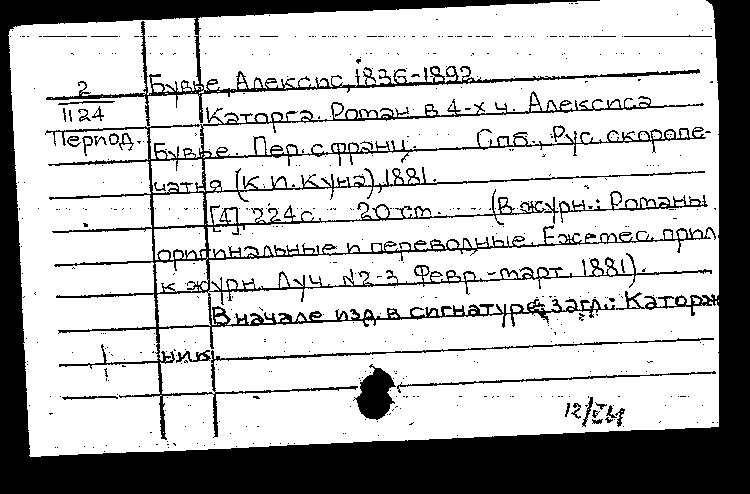 2 Бувье, Алексис, 1836-1892.
1124 Каторга. Роман в 4-х ч. Алексиса
Период. Бувье. Пер. с франц. Спб., Рус. скоропе-
чатня (К.П. Куна), 1881.
[4], 224 с. 20 cm. (В журн.: Романы
оригинальные и переводные. Ежемес. прил.
к журн. Луч. №2-3. Февр.-март. 1881).
В начале изд. в сигнатуре загл.: Каторж
ник.